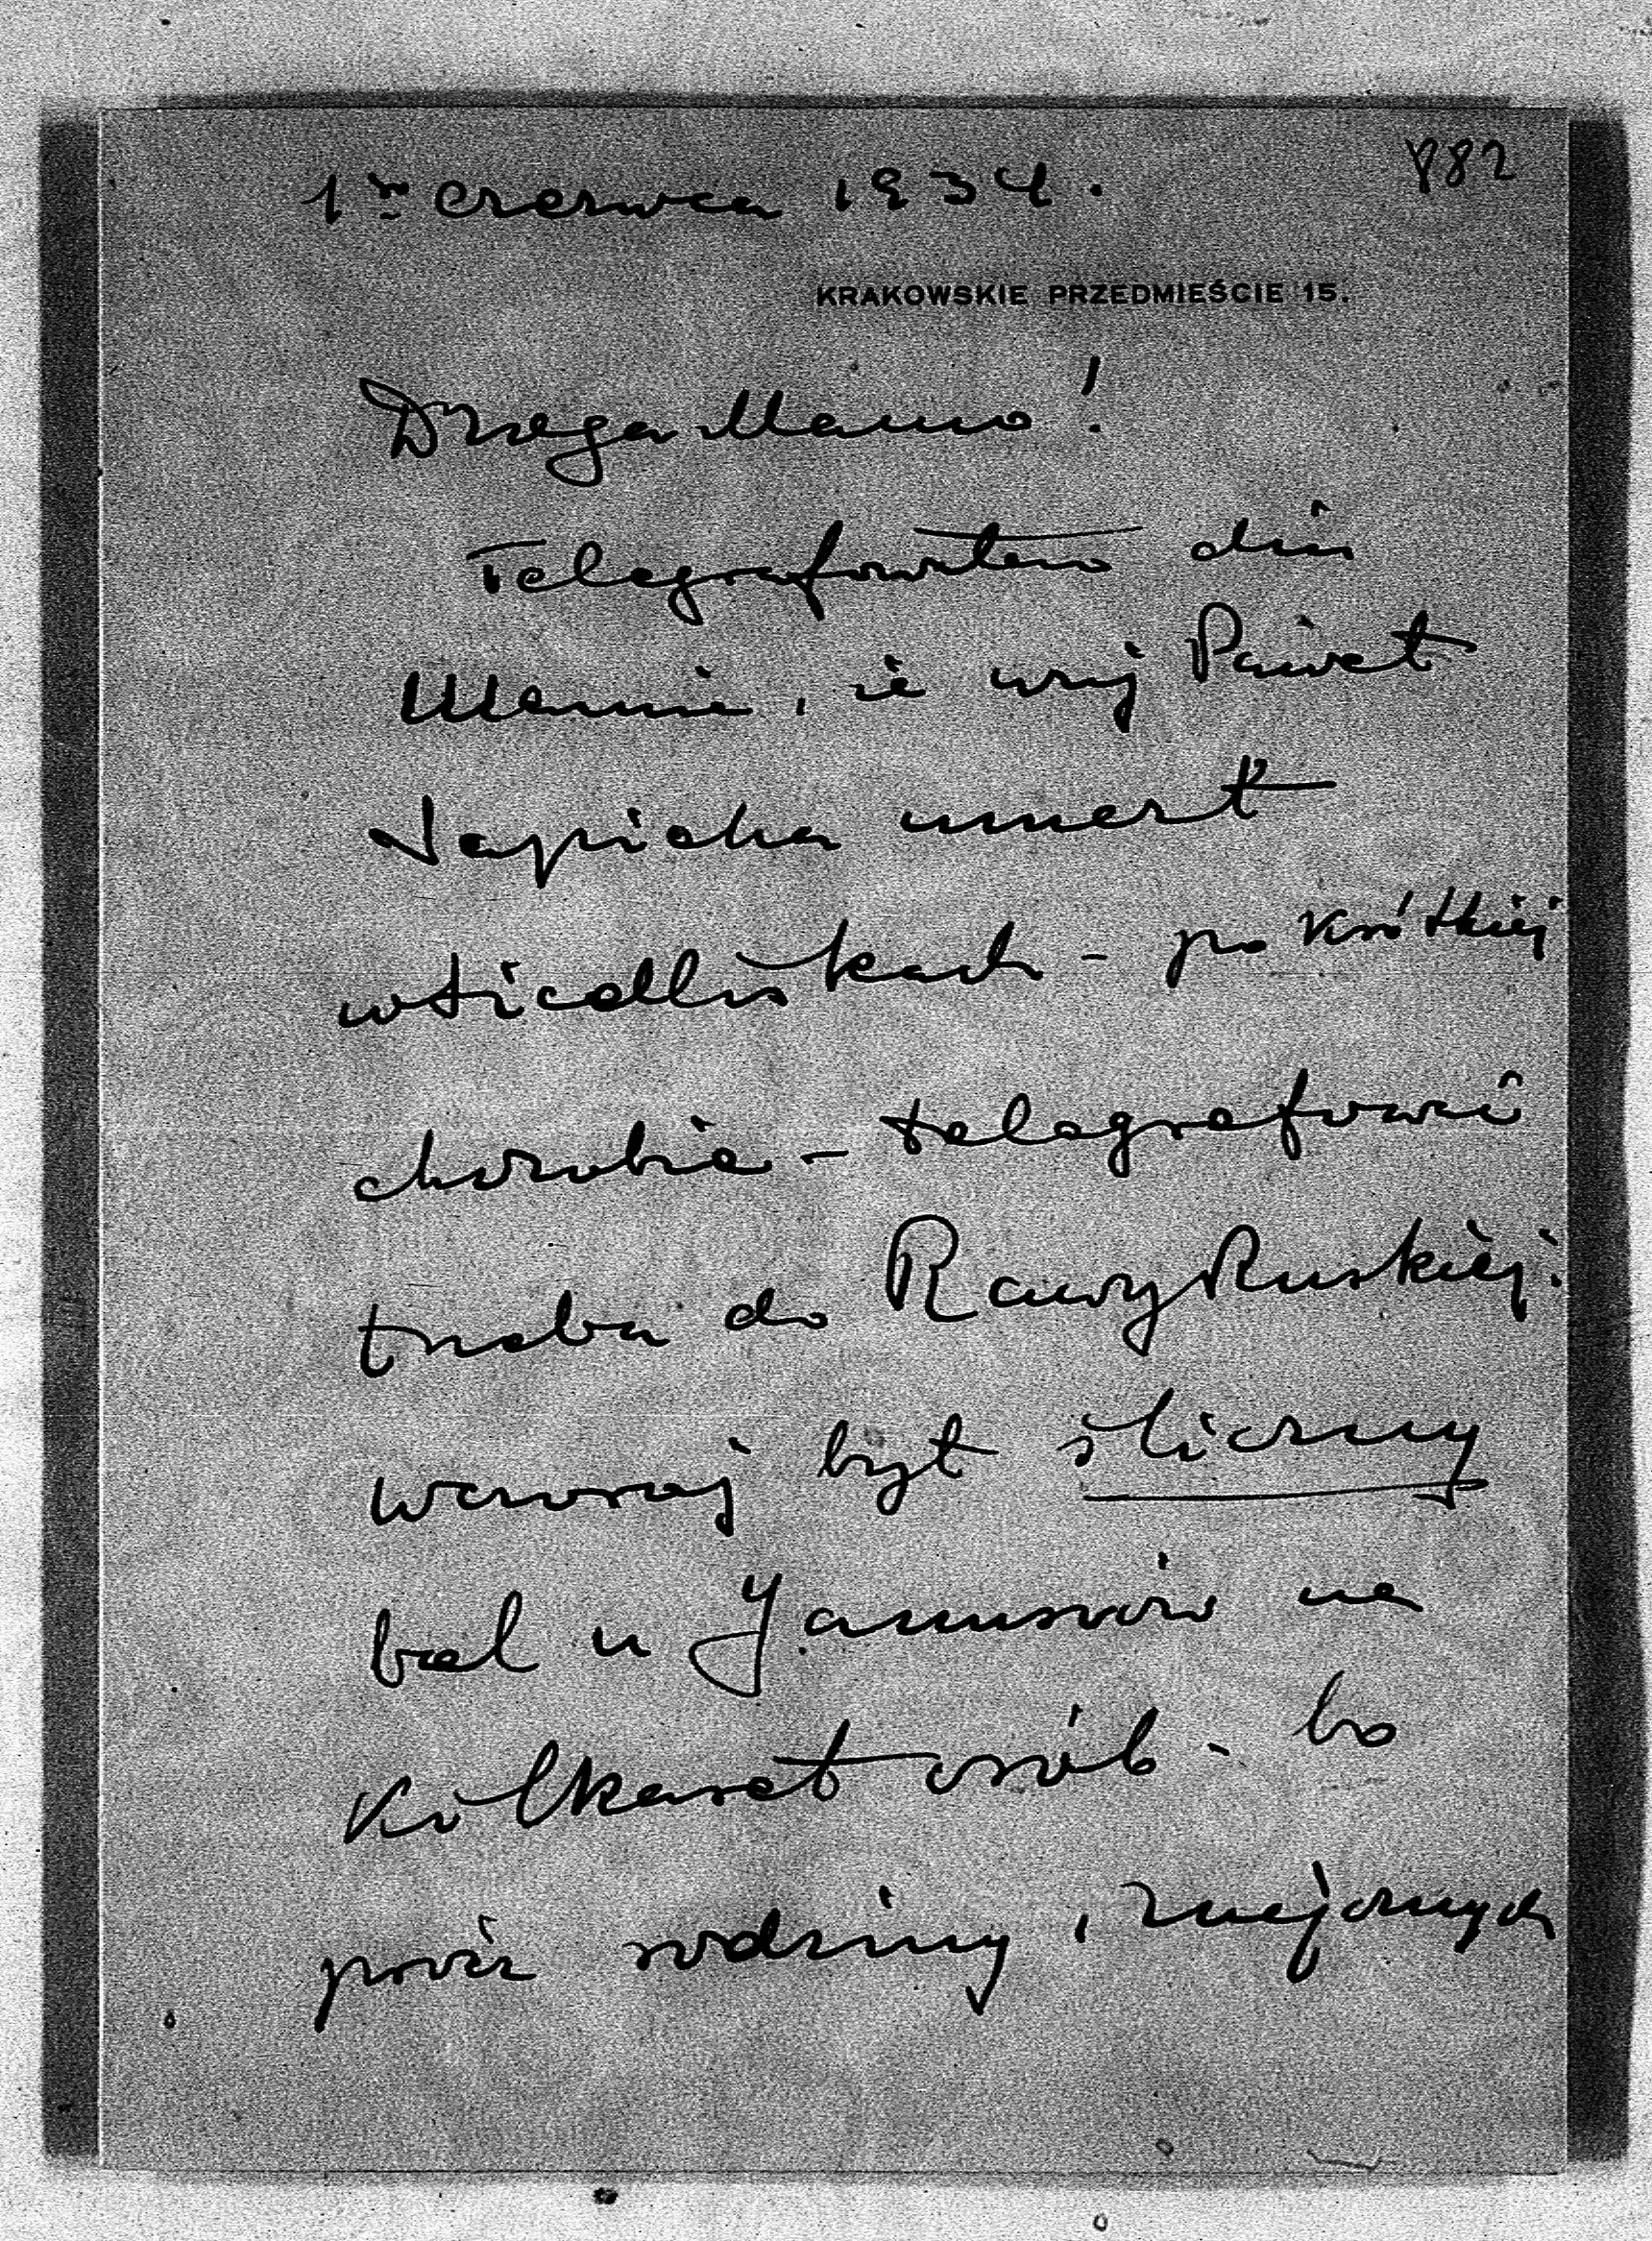 1go czerwca 1934.
882
KRAKOWSKIE PRZEDMIEŚCIE 15.
Droga Mamo!
Telegrafowałem dziś
Mamie, że wuj Paweł
Sapieha umarł
w Siedliskach – po krótkiej
chorobie – telegrafować
trzeba do Rawy Ruskiej.
Wczoraj był śliczny
bal u Januszów na
kilkaset osób – bo
prócz rodziny i znajomych